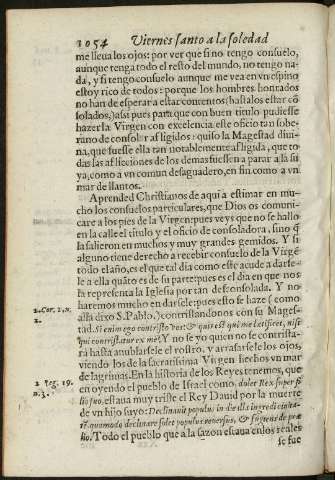 1054 Viernes santo a la soledad
me lleua los ojos: por ver que si no tengo consuelo,
aunque tenga todo el resto del mundo, no tengo na-
da, y si tengo consuelo aunque me vea en vn espino
estoy rico de todos: porque los hombres honrados
no han de esperar a estar contentos (hasta los estar cõ
solados,) assi pues para que con buen titulo pudiesse
hazer la Virgen con excelencia este oficio tan sobe-
rano de consolar afligidos: quiso la Magestad diui-
na, que fuesse ella tan notablemente afligida, que to
das las aflicciones de los demas fuessen a parar a la su
ya, como a vn comun desaguadero, en fin como a vn
mar de llantos.
Aprended Christianos de aqui a estimar en mu-
cho los consuelos particulares, que Dios os comuni-
care a los pies de la Virgen: pues veys que no se hallo
en la calle el titulo y el oficio de consoladora, sino q̃
la salieron en muchos y muy grandes gemidos. Y si
alguno tiene derecho a recebir consuelo de la Virgẽ
todo el año, es el que tal dia como este acude a darse-
le a ella quãto es de su parte: pues es el dia en que nos
la representa la Iglesia por tan desconsolada. Y no
haremos mucho en darsele: pues esto se haze (como
alla dixo S. Pablo,) contristandonos con su Mages-
2. Cor. 2, n.
2.
tad. Si enim ego contristo vos: & quis est qui me lætificet, nisi
qui contristatur ex me? Y no se yo quien no se contrista-
rá hasta anublarsele el rostro, y arrasarsele los ojos,
viendo los de la sacratissima Virgen hechos vn mar
de lagrimas. En la historia de los Reyes tenemos, que
2. Reg. 19.
n. 3.
en oyendo el pueblo de Israel como: dolet Rex super fi
lio suo, estaua muy triste el Rey Dauid por la muerte
de vn hijo suyo: Declinauit populus in die illa ingredi ciuita-
tẽ, quomodo declinare solet populus versus, & fugiens de præ
lio. Todo el pueblo que a la sazon estaua en los reales
se fue